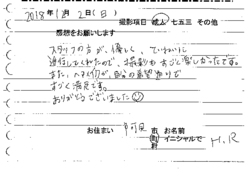 2018年1月2日(日)
撮影項目 成人 七五三 その他
感想をお願いします
スタッフの方が、優しく、ていねいに
接してくれたので、撮影もすごく楽しかったです。
また、ヘアメイクが、自分の希望通りで
すごく満足です。
ありがとうございました
お住まい 市 町 村 お名前 イニシャルで H.R